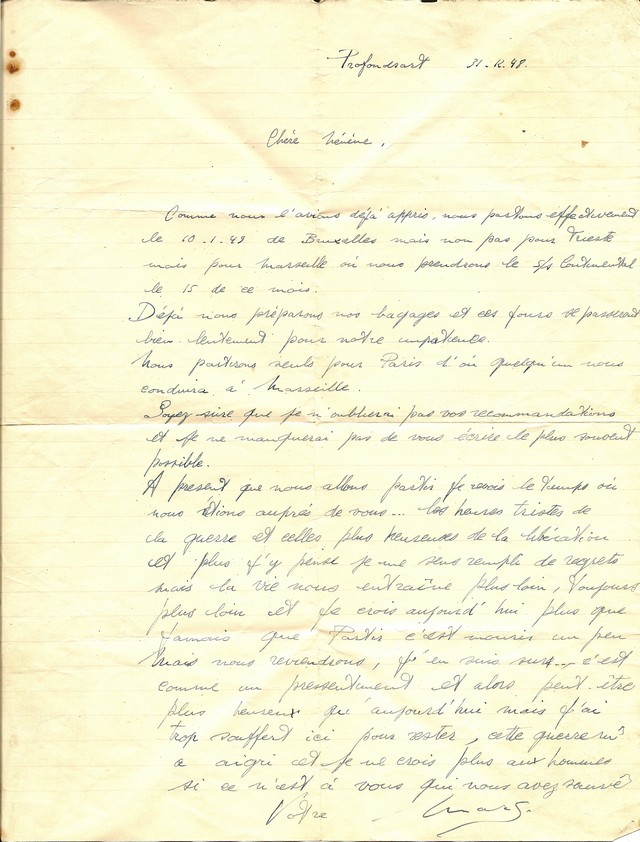 Profondsart 31.12.48.
Chère Hélène,
Comme nous l'avions déjà appris, nous partons effectivement
le 10.1.49 de Bruxelles mais non pas pour Trieste
mais pour Marseille où nous prendrons le S/S Continental
le 15 de ce mois.
Déjà nous préparons nos bagages et ces jours se passeront
bien lentement pour notre impatience.
Nous partirons seuls pour Paris d'où quelqu'un nous
conduira à Marseille.
Soyez sûre que je n'oublierai pas vos recommandations
et je ne manquerai pas de vous écrire le plus souvent
possible.
A présent que nous allons partir je revois le temps où
nous étions auprès de vous... les heures tristes de
la guerre et celles plus heureuses de la libération
et plus j'y pense je me sens remplt de regrets
mais la vie nous entraîne plus loin, toujours
plus loin et je crois aujourd'hui plus que
jamais que Partir c'est mourir un peu
Mais nous reviendrons, j'en suis sur... c'est
comme un pressentiment et alors peut-être
plus heureux qu'aujourd'hui mais j'ai
trop souffert ici pour rester, cette guerre m'
a aigri et je ne crois plus aux hommes
si ce n'est à vous qui nous avez sauvé
Vôtre